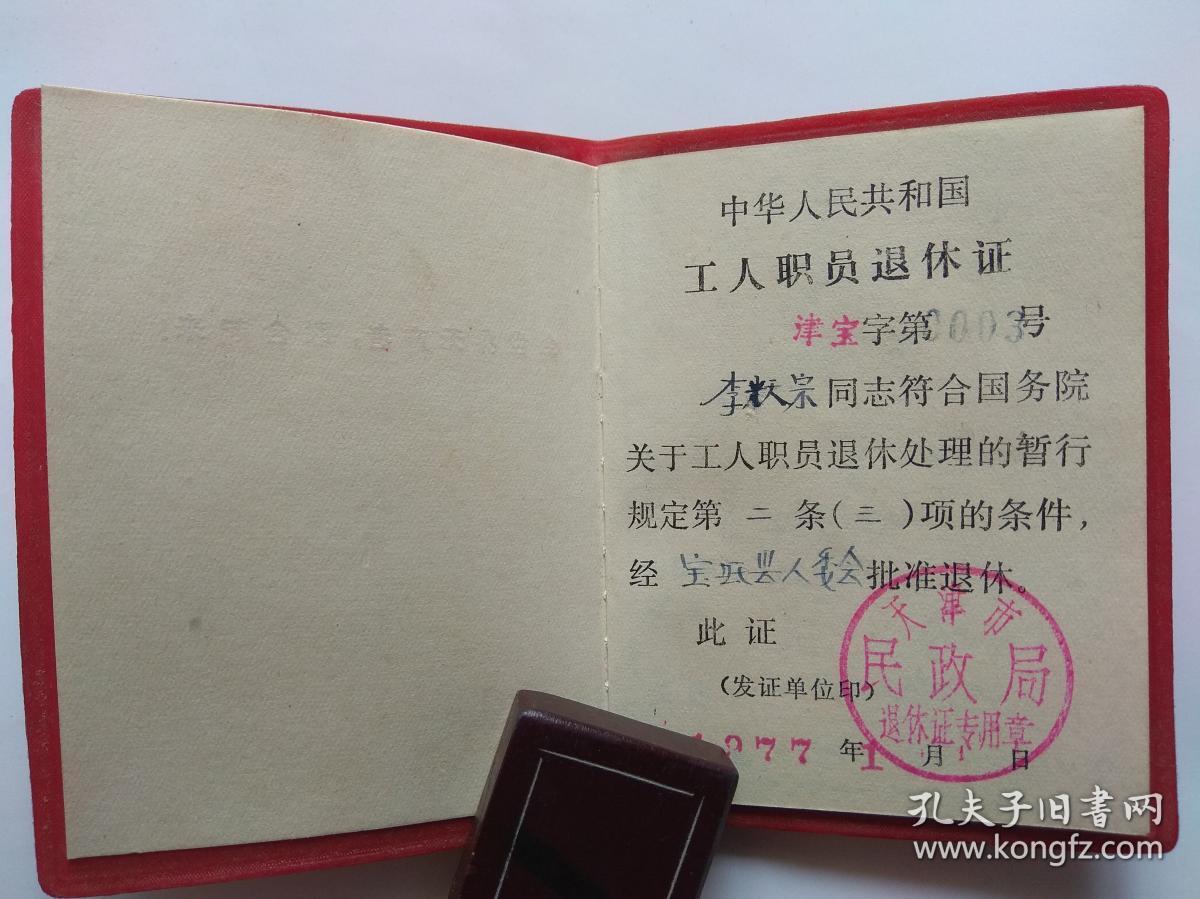 中华人民共和国
工人职员退休证
津宝字第0003号
李 宗同志符合国务院
关于工人职员退休处理的暂行
规定第 二 条(三)项的条件,
经 宝坻县人委会批准退休。
此 证
(发证单位印)
天津市
民政局
退休证专用章
1977 年 1 月 日
孔夫子旧书网
www.kongfz.com